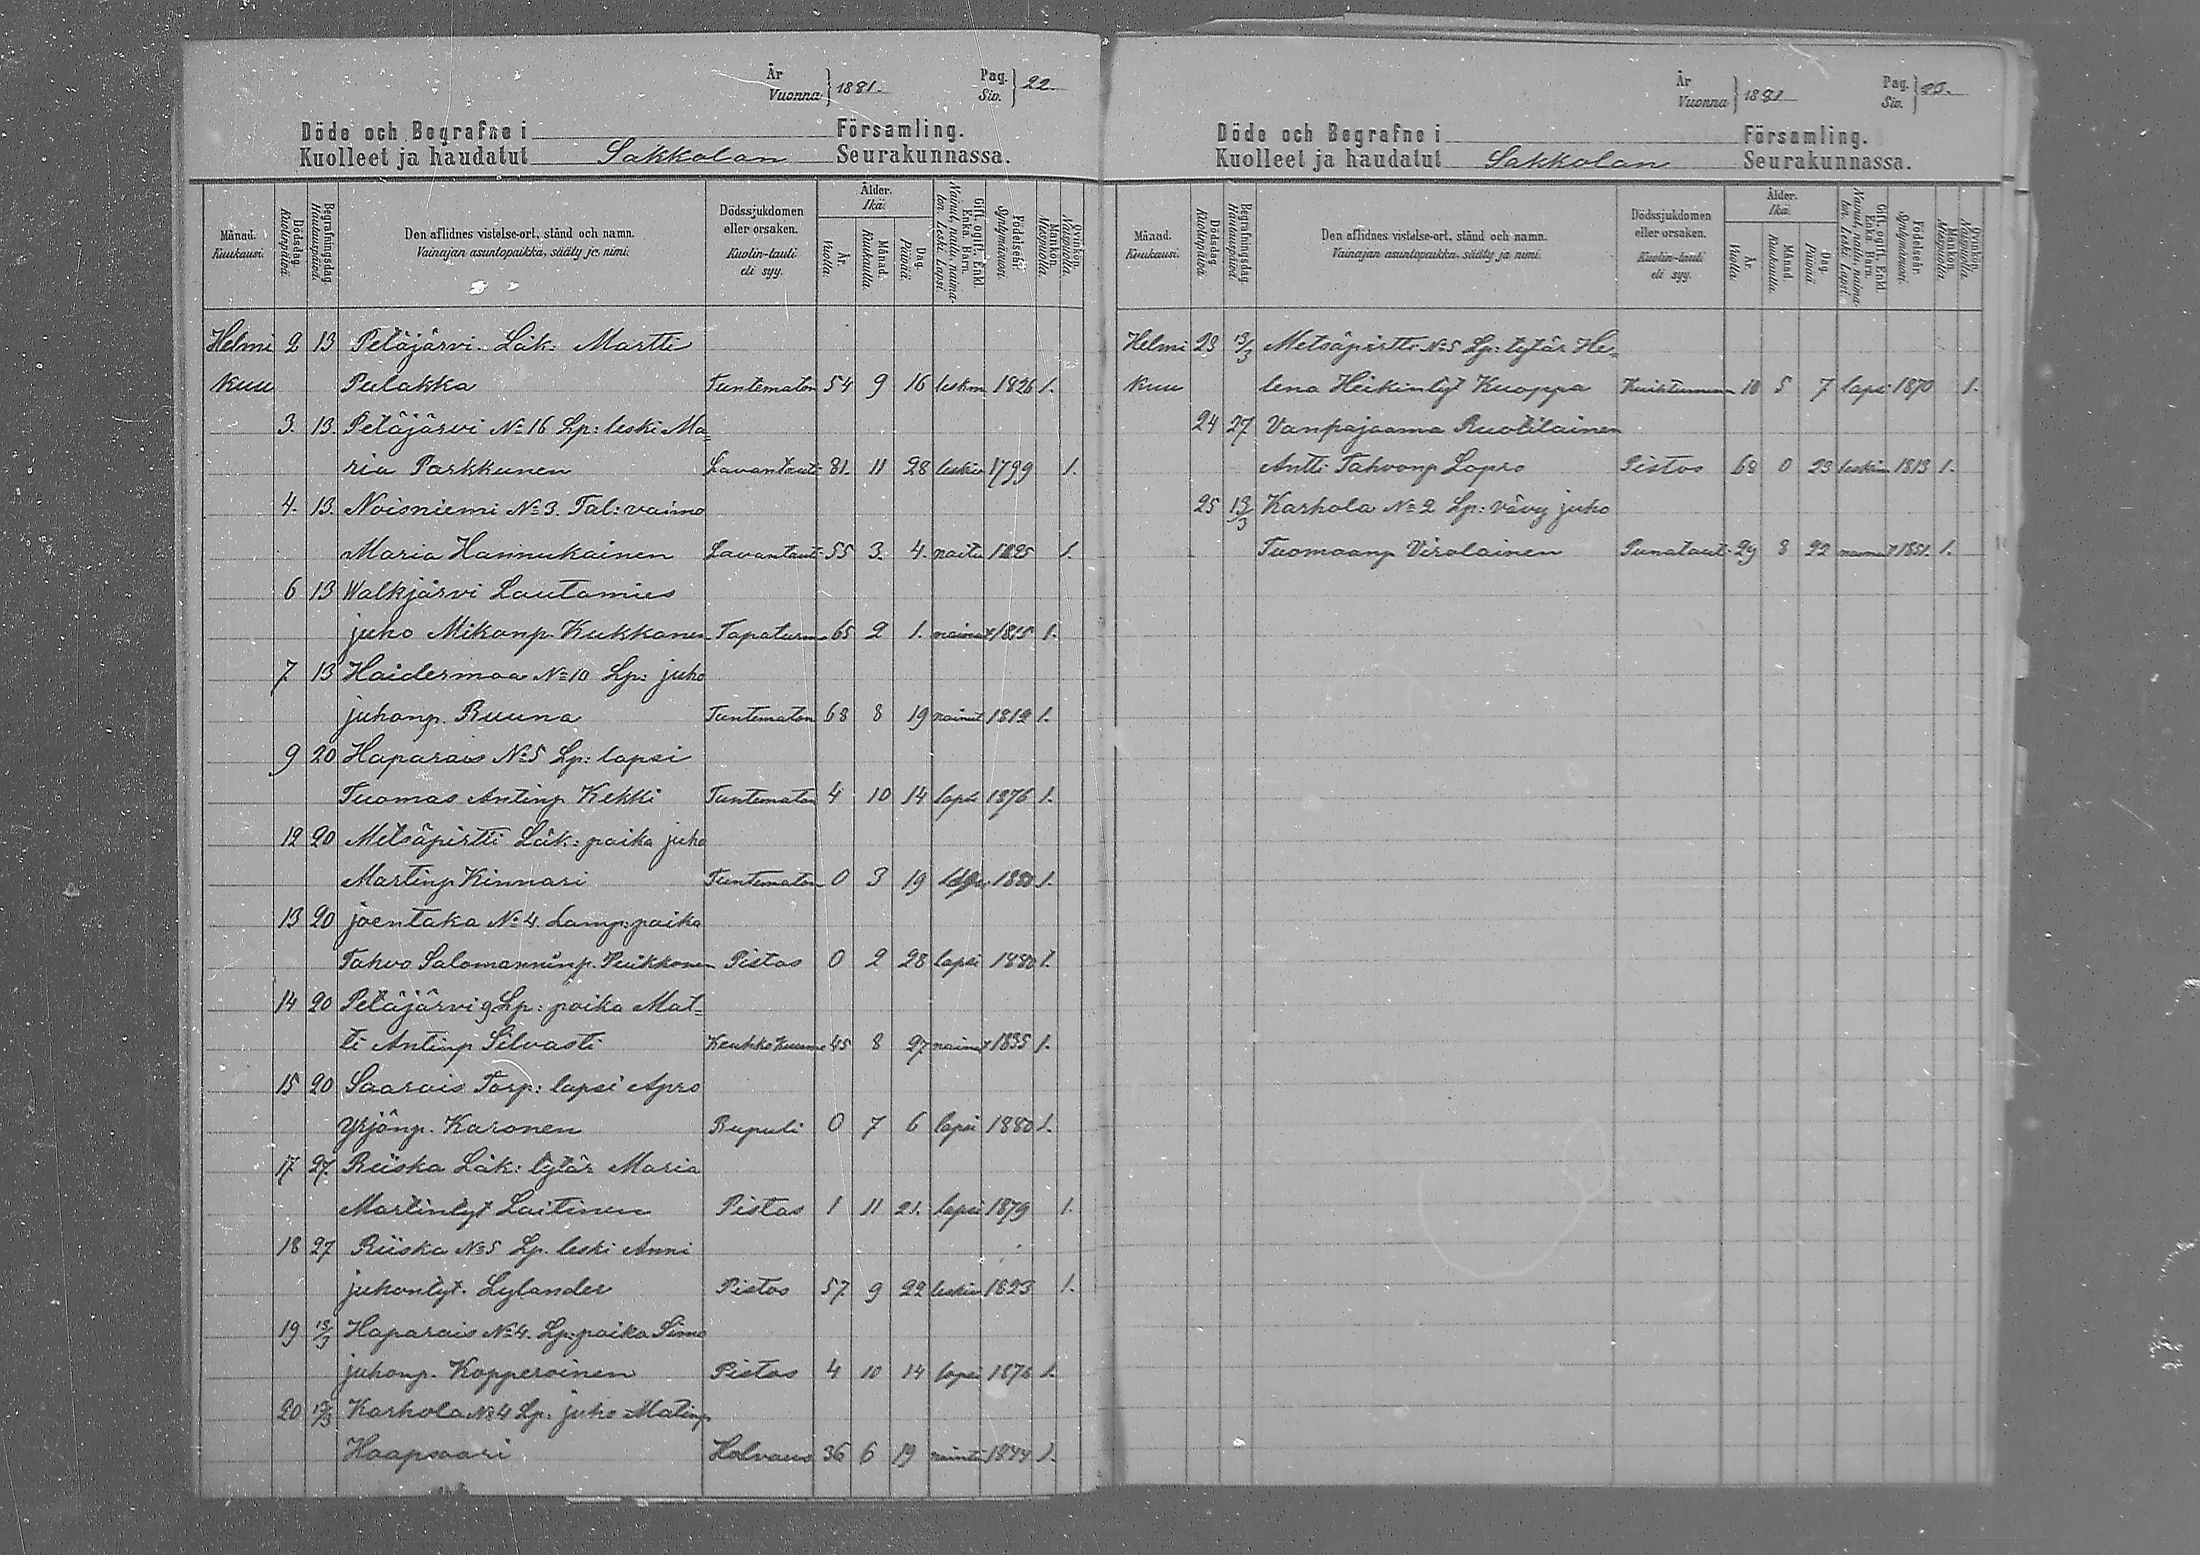 År
Vuonna } 1881.
Pag.
Siv. } 22.
Döde och Begrafne i Församling.
Kuolleet ja haudatut Sakkolan Seurakunnassa.
Månad. Kuukausi.
Dödsdag. Kuolinpäivä.
Begrafningsdag. Hautauspäivä.
Den aflidnes vistelse-ort, stånd och namn.
Vainajan asuntopaikka, sääty ja nimi.
Dödssjukdomen eller orsaken.
Kuolin-tauti eli syy.
Ålder. Ikä.
År. Vuotta.
Månad. Kuukautta.
Dag. Päivää.
Gift, ogift, Enkl. Enka, Barn.
Nainut, naitu, naimaton, Leski, Lapsi.
Födelseår. Syntymävuosi.
Mankön. Miespuolia.
Qvinkön. Naispuolia.
Helmi 2 13 Petäjärvi Läk: Martti
kuu Pulakka Tuntematon 54 9 16 leskm 1826 1.
3. 13. Petäjärvi No 16 Lp: leski Ma=
ria Parkkunen Lavantauti 81. 11 28 leskiv 1799 1.
4. 13. Noisniemi No 3. Tal: vaimo
Maria Hannukainen Lavantauti 55 3. 4. naitu 1825 1.
6 13 Walkjärvi Lautamies
juho Mikonp. Kukkonen Tapaturma 65 2 1. nainut 1815 1.
7 13 Haidermaa No 10 Lp: juho
juhonp. Ruuna Tuntematon 68 8 19 nainut 1812 1.
9 20 Haparais No 5 Lp: lapsi
Tuomas Antinp. Kekki Tuntematon 4 10 14 lapsi 1876 1.
12 20 Metsäpirtti Läk: poika juho
Martinp Kinnari Tuntematon 0 3 19 1880 1.
13 20 joentaka No 4. Lamp: poika
Tahvo Salomanninp. Puikkonen Pistos 0 2 28 lapsi 1880 1.
14 20 Petäjärvi 9 Lp: poika Mat=
ti Antinp Silvasti Keuhkokuume 45 8 27 nainut 1835 1.
15 20 Saarois Torp: lapsi Apro
Yrjönp. Karonen Rupuli 0 7 6 lapsi 1880 1.
17. 27. Riiska Läk: tytär Maria
Martintyt Laitinen Pistos 1 11 21. lapsi 1879 1.
18 27 Riiska No 5 Lp. leski Anni
juhontyt. Lylander Pistos 57 9 22 leskiv 1823 1.
19 13/3 Haparais No 4. Lp: poika Simo
juhonp. Kopperoinen Pistos 4 10 14 lapsi 1876 1.
20 13/3 Karhola No 4 Lp. juho Matinp
Haapsaari Halvaus 36 6 19 1844 1.
År
Vuonna } 1881
Pag.
Siv. } 23.
Döde och Begrafne i Församling.
Kuolleet ja haudatut Sakkolan Seurakunnassa.
Månad. Kuukausi.
Dödsdag. Kuolinpäivä.
Begrafningsdag. Hautauspäivä.
Den aflidnes vistelse-ort, stånd och namn.
Vainajan asuntopaikka, sääty ja nimi.
Dödssjukdomen eller orsaken.
Kuolin-tauti eli syy.
Ålder. Ikä.
År. Vuotta.
Månad. Kuukautta.
Dag. Päivää.
Gift, ogift, Enkl. Enka, Barn.
Nainut, naitu, naimaton, Leski, Lapsi.
Födelseår. Syntymävuosi.
Mankön. Miespuolia.
Qvinkön. Naispuolia.
Helmi 23 13/3 Metsäpirtti No 5 Lp: tytär He=
kuu lena Heikintyt Kuoppa 10 5 7 lapsi 1870 1.
24 27 Vanpajaama Ruotilainen
Antti Tahvonp Lopro Pistos 68 0 23 1813 1.
25 13/3 Karhola No 2 Lp: vävy juho
Tuomaanp Virolainen Punataut. 29 8 22 1851. 1.